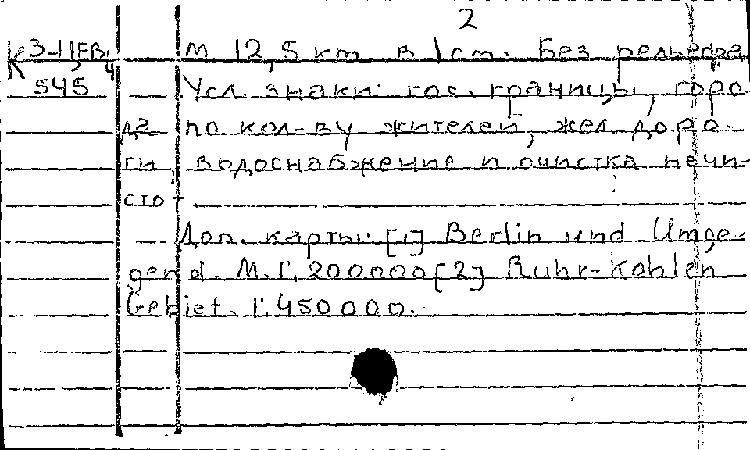 2
К 3-11FB, 4 М 12,5 км в 1 см. Без рельефа
545 Усл. знаки: гос. границы, горо
да по кол-ву жителей, жел. доро-
ги, водоснабжение и очистка нечи-
стот
Доп. карты: [1] Berlin und Umge-
gend. M. 1:200000 [2] Ruhr-Kohlen
Gebiet. 1:450000.